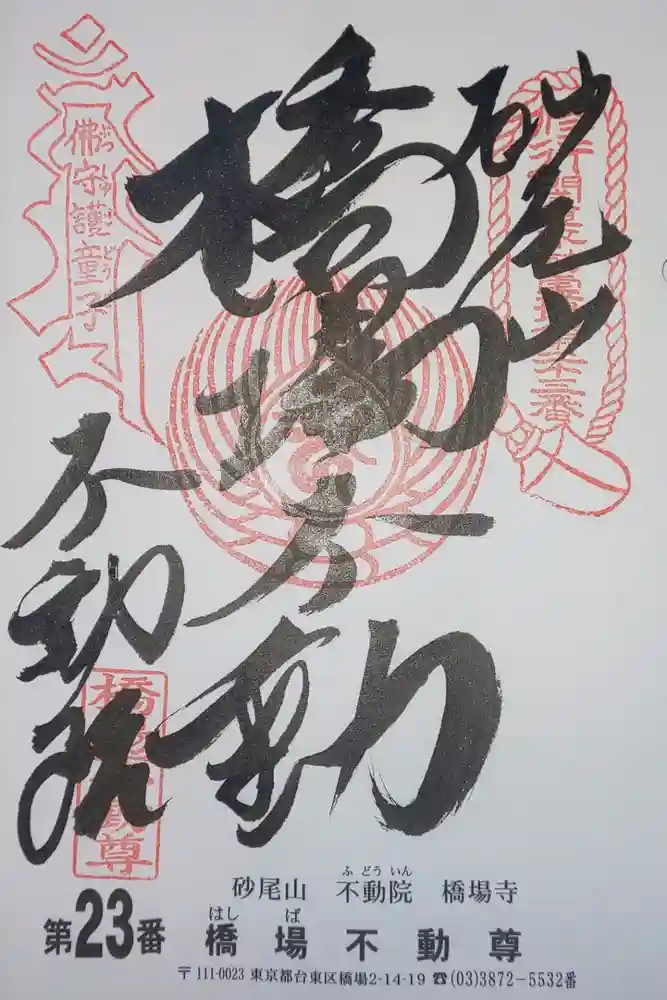 砂尾山
橋場不動
不動院
佛守護童子
砂尾山　不動院　橋場寺
ふどういん
第23番 橋場不動尊
はし ば
〒111-0023 東京都台東区橋場2-14-19 ☎(03)3872-5532番